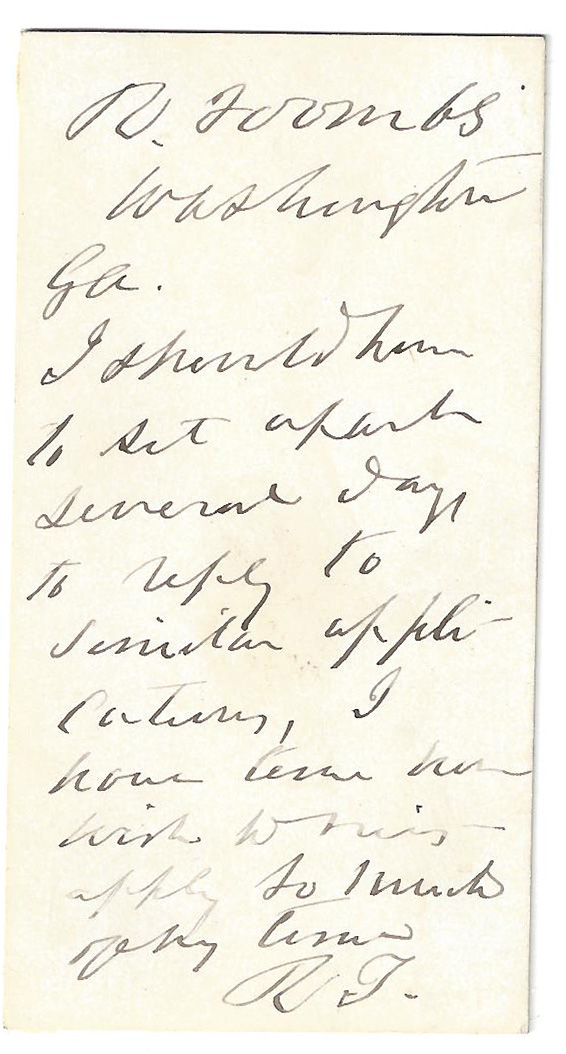 R. Toombs
Washington
Ga.
I should have
to set apart
several days
to reply to
similar appli-
cations, I
have time nor
wish to mis-
apply so much
of my time
R. T.